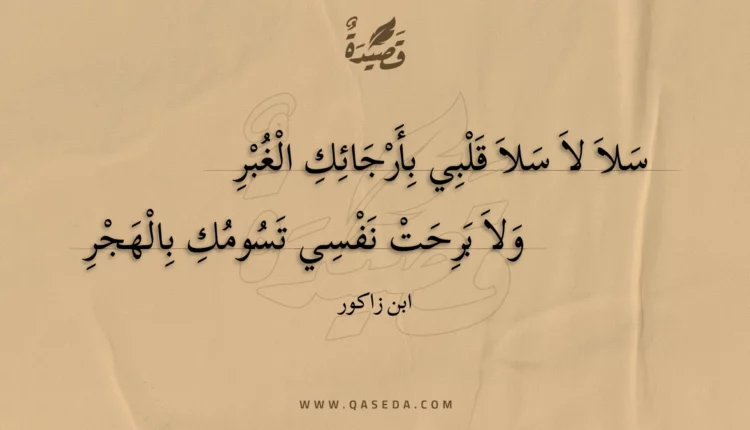 قَصِيدَةٌ
سَلاَ لاَ سَلاَ قَلْبِي بِأَرْجَائِكِ الْغُبْرِ
وَلاَ بَرِحَتْ نَفْسِي تَسُومُكِ بِالْهَجْرِ
ابن زاكور
WWW.QASEDA.COM